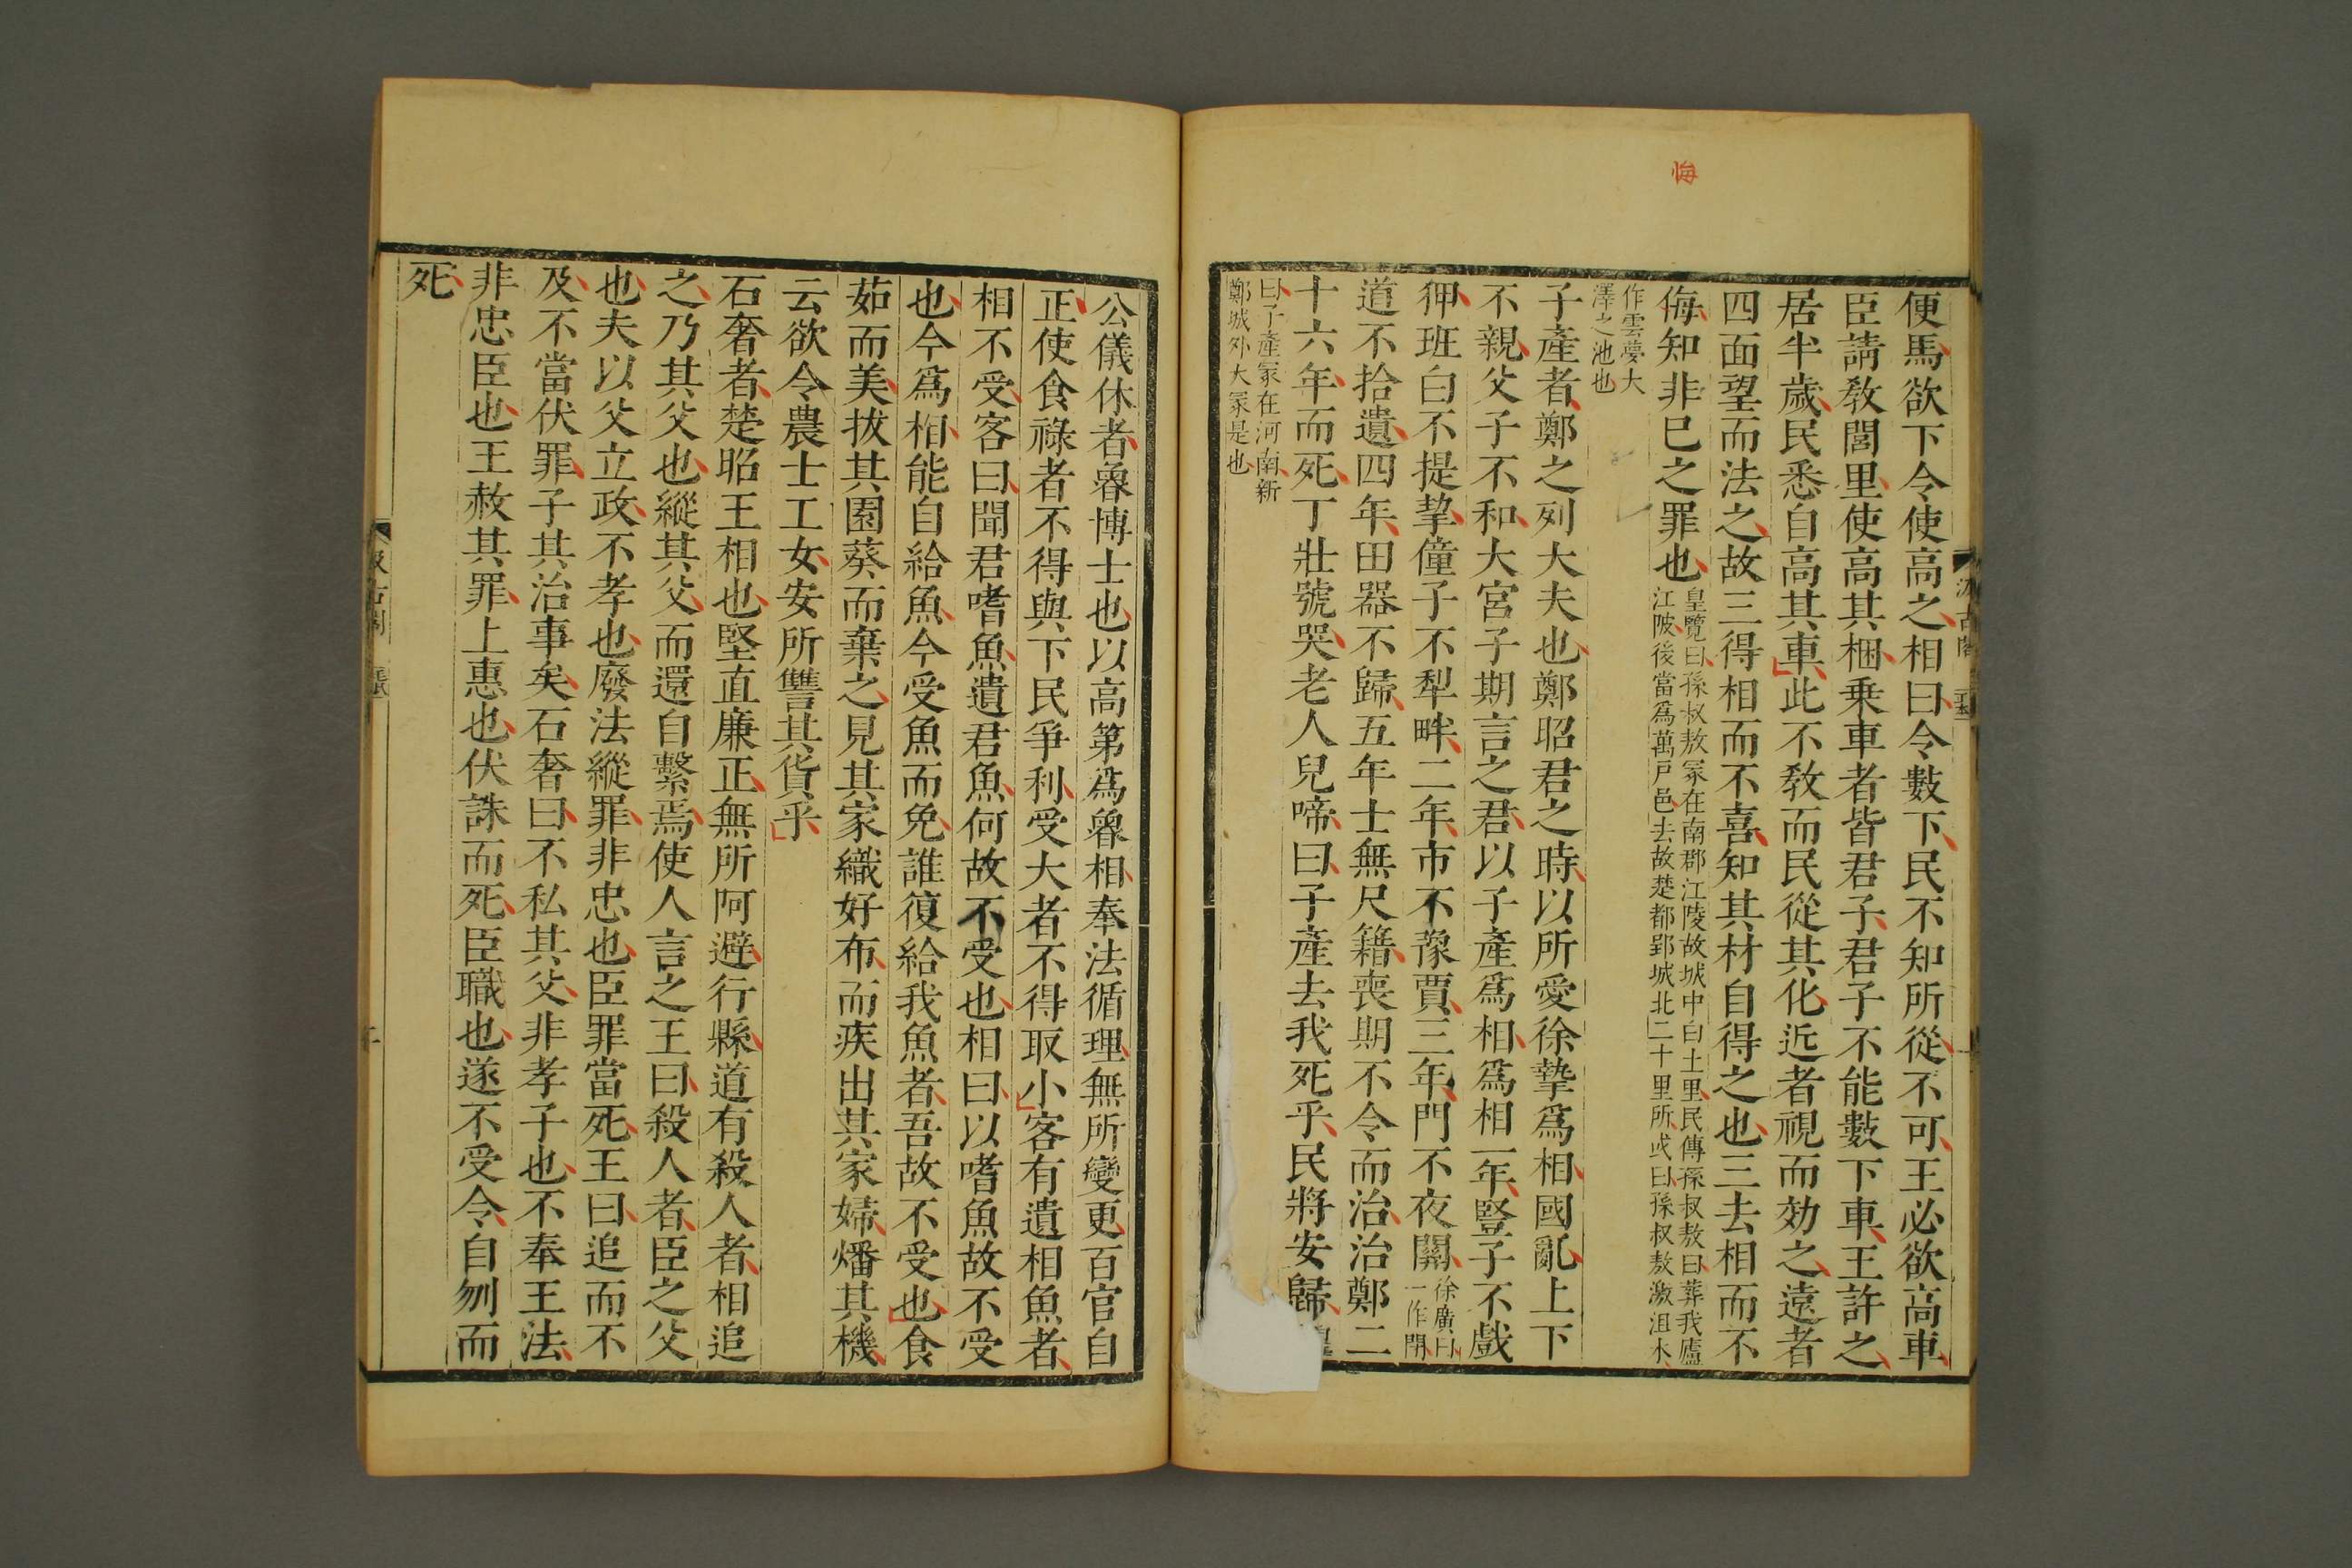 悔
便馬欲下令使高之相曰令數下民不知所從不可王必欲高車
臣請敎閭里使高其梱乗車者皆君子君子不能數下車王許之
居半歲民悉自高其車此不敎而民從其化近者視而効之遠者
四面望而法之故三得相而不喜知其材自得之也三去相而不
侮知非巳之罪也皇覽曰孫叔敖冢在南郡江陵故城中白土里民傳孫叔敖曰葬我廬
江陂後當爲萬戸邑去故楚都郢城北二十里所或曰孫叔敖激沮水
作雲夢大
澤之池也
子產者鄭之列大夫也鄭昭君之時以所愛徐摯爲相國亂上下
不親父子不和大宮子期言之君以子產爲相爲相一年豎子不戲
狎班白不提挈僮子不犁畔二年市不豫賈三年門不夜關徐廣曰
一作閉
道不拾遺四年田器不歸五年士無尺籍喪期不令而治治鄭二
十六年而死丁壯號哭老人兒啼曰子產去我死乎民將安歸
曰子產冢在河南新
鄭城外大冢是也
公儀休者魯博士也以高第爲魯相奉法循理無所變更百官自
正使食祿者不得與下民爭利受大者不得取小客有遺相魚者
相不受客曰聞君嗜魚遺君魚何故不受也相曰以嗜魚故不受
也今爲相能自給魚今受魚而免誰復給我魚者吾故不受也食
茹而美拔其園葵而棄之見其家織好布而疾出其家婦燔其機
云欲令農士工女安所讐其貨乎
石奢者楚昭王相也堅直廉正無所阿避行縣道有殺人者相追
之乃其父也縱其父而還自繫焉使人言之王曰殺人者臣之父
也夫以父立政不孝也廢法縱罪非忠也臣罪當死王曰追而不
及不當伏罪子其治事矣石奢曰不私其父非孝子也不奉王法
非忠臣也王赦其罪上惠也伏誅而死臣職也遂不受令自刎而
死